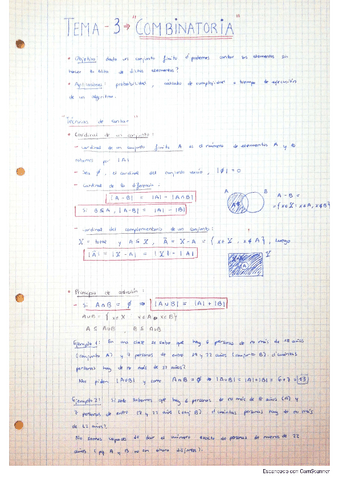 TEMA - 3 → "COMBINATORIA"
• Objetivo: dado un conjunto finito ¿podemos contar los elementos sin
hacer la lista de dichos elementos?
• Aplicaciones: probabilidad, cálculo de complejidad o tiempo de ejecución
de un algoritmo.
"Técnicas de contar"
• Cardinal de un conjunto:
- cardinal de un conjunto finito A es el número de elementos A y
por |A|
- Sea ∅. El cardinal del conjunto vacío, |∅| = 0
- cardinal de la diferencia:
|A-B| = |A| - |A∩B|
- Si B⊆A, |A-B| = |A| - |B|
A B
A - B =
= {x∈X : x∈A, x∉B}
- cardinal del complementario de un conjunto:
X = total y A⊆X, Ā = X - A = {x∈X, x∉A}, luego
|Ā| = |X - A| = |X| - |A|
• Principio de adición:
- Si A∩B = ∅ ⇒ |A∪B| = |A| + |B|
Ejemplo 1: En una clase se sabe que hay 6 personas de no más de años
(conjunto A) y 7 personas de entre y 22 años (conjunto B) ¿cuántas
personas hay de no más de 22 años?
Nos piden |A∪B| y como A∩B = ∅ ⇒ |A∪B| = |A|+|B| = 6+7 = 13
Ejemplo 2: Si solo sabemos que hay 6 personas de no más de años A y
7 personas de entre y 22 años (conj B) ¿cuántas personas hay de no más
de 22 años?
No somos capaces de dar el número exacto de personas de menos de 22
años (pq A y B no son disjuntos).
Escaneado con CamScanner